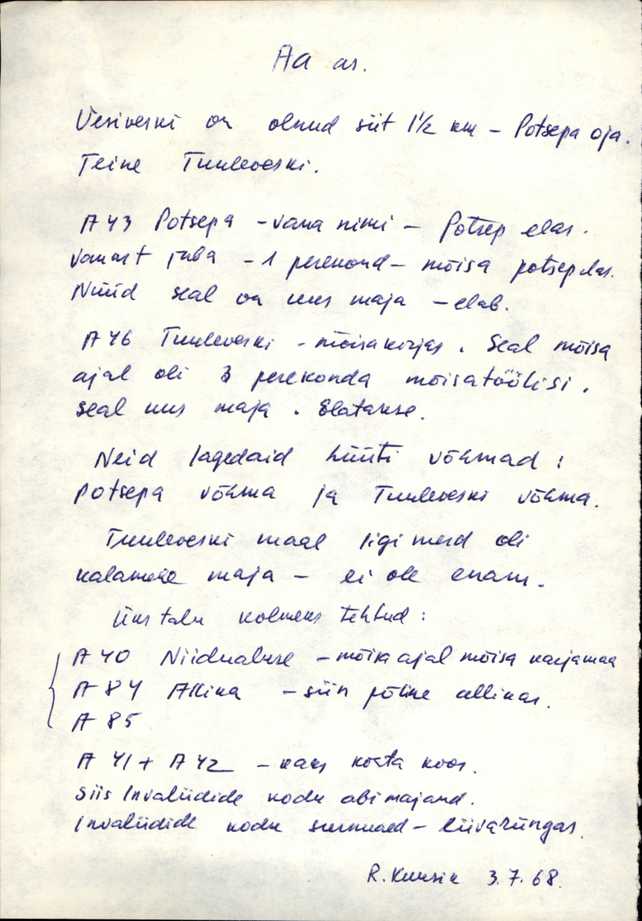 Aa as.
Vesiveski on olnud siit 1½ km – Potsepa oja.
Teine Tuuleveski.
A 43 Potsepa – vana nimi – Potsep elas.
Vanast juba – 1 perekond – mõisa potsep elas.
Nüüd seal on uus maja – elab.
A 46 Tuuleveski – mõisakirjas. Seal mõisa
ajal oli 3 perekonda mõisatöölisi.
Seal uus maja. Elatakse.
Neid lagedaid hüüti võhmad:
Potsepa võhma ja Tuuleveski võhma.
Tuuleveski maal ligi merd oli
kalamehe maja – ei ole enam.
Üks talu kolmeks tehtud:
A 40 Niidualuse – mõisa ajal mõisa karjamaa
A 84 Allika – siin põline allikas.
A 85
A 41 + A 42 – kaks kohta koos.
Siis Invaliidide kodu abimajand.
Invaliidide kodu surnuaed – liivarüngas.
R. Kuusik 3.7.68.